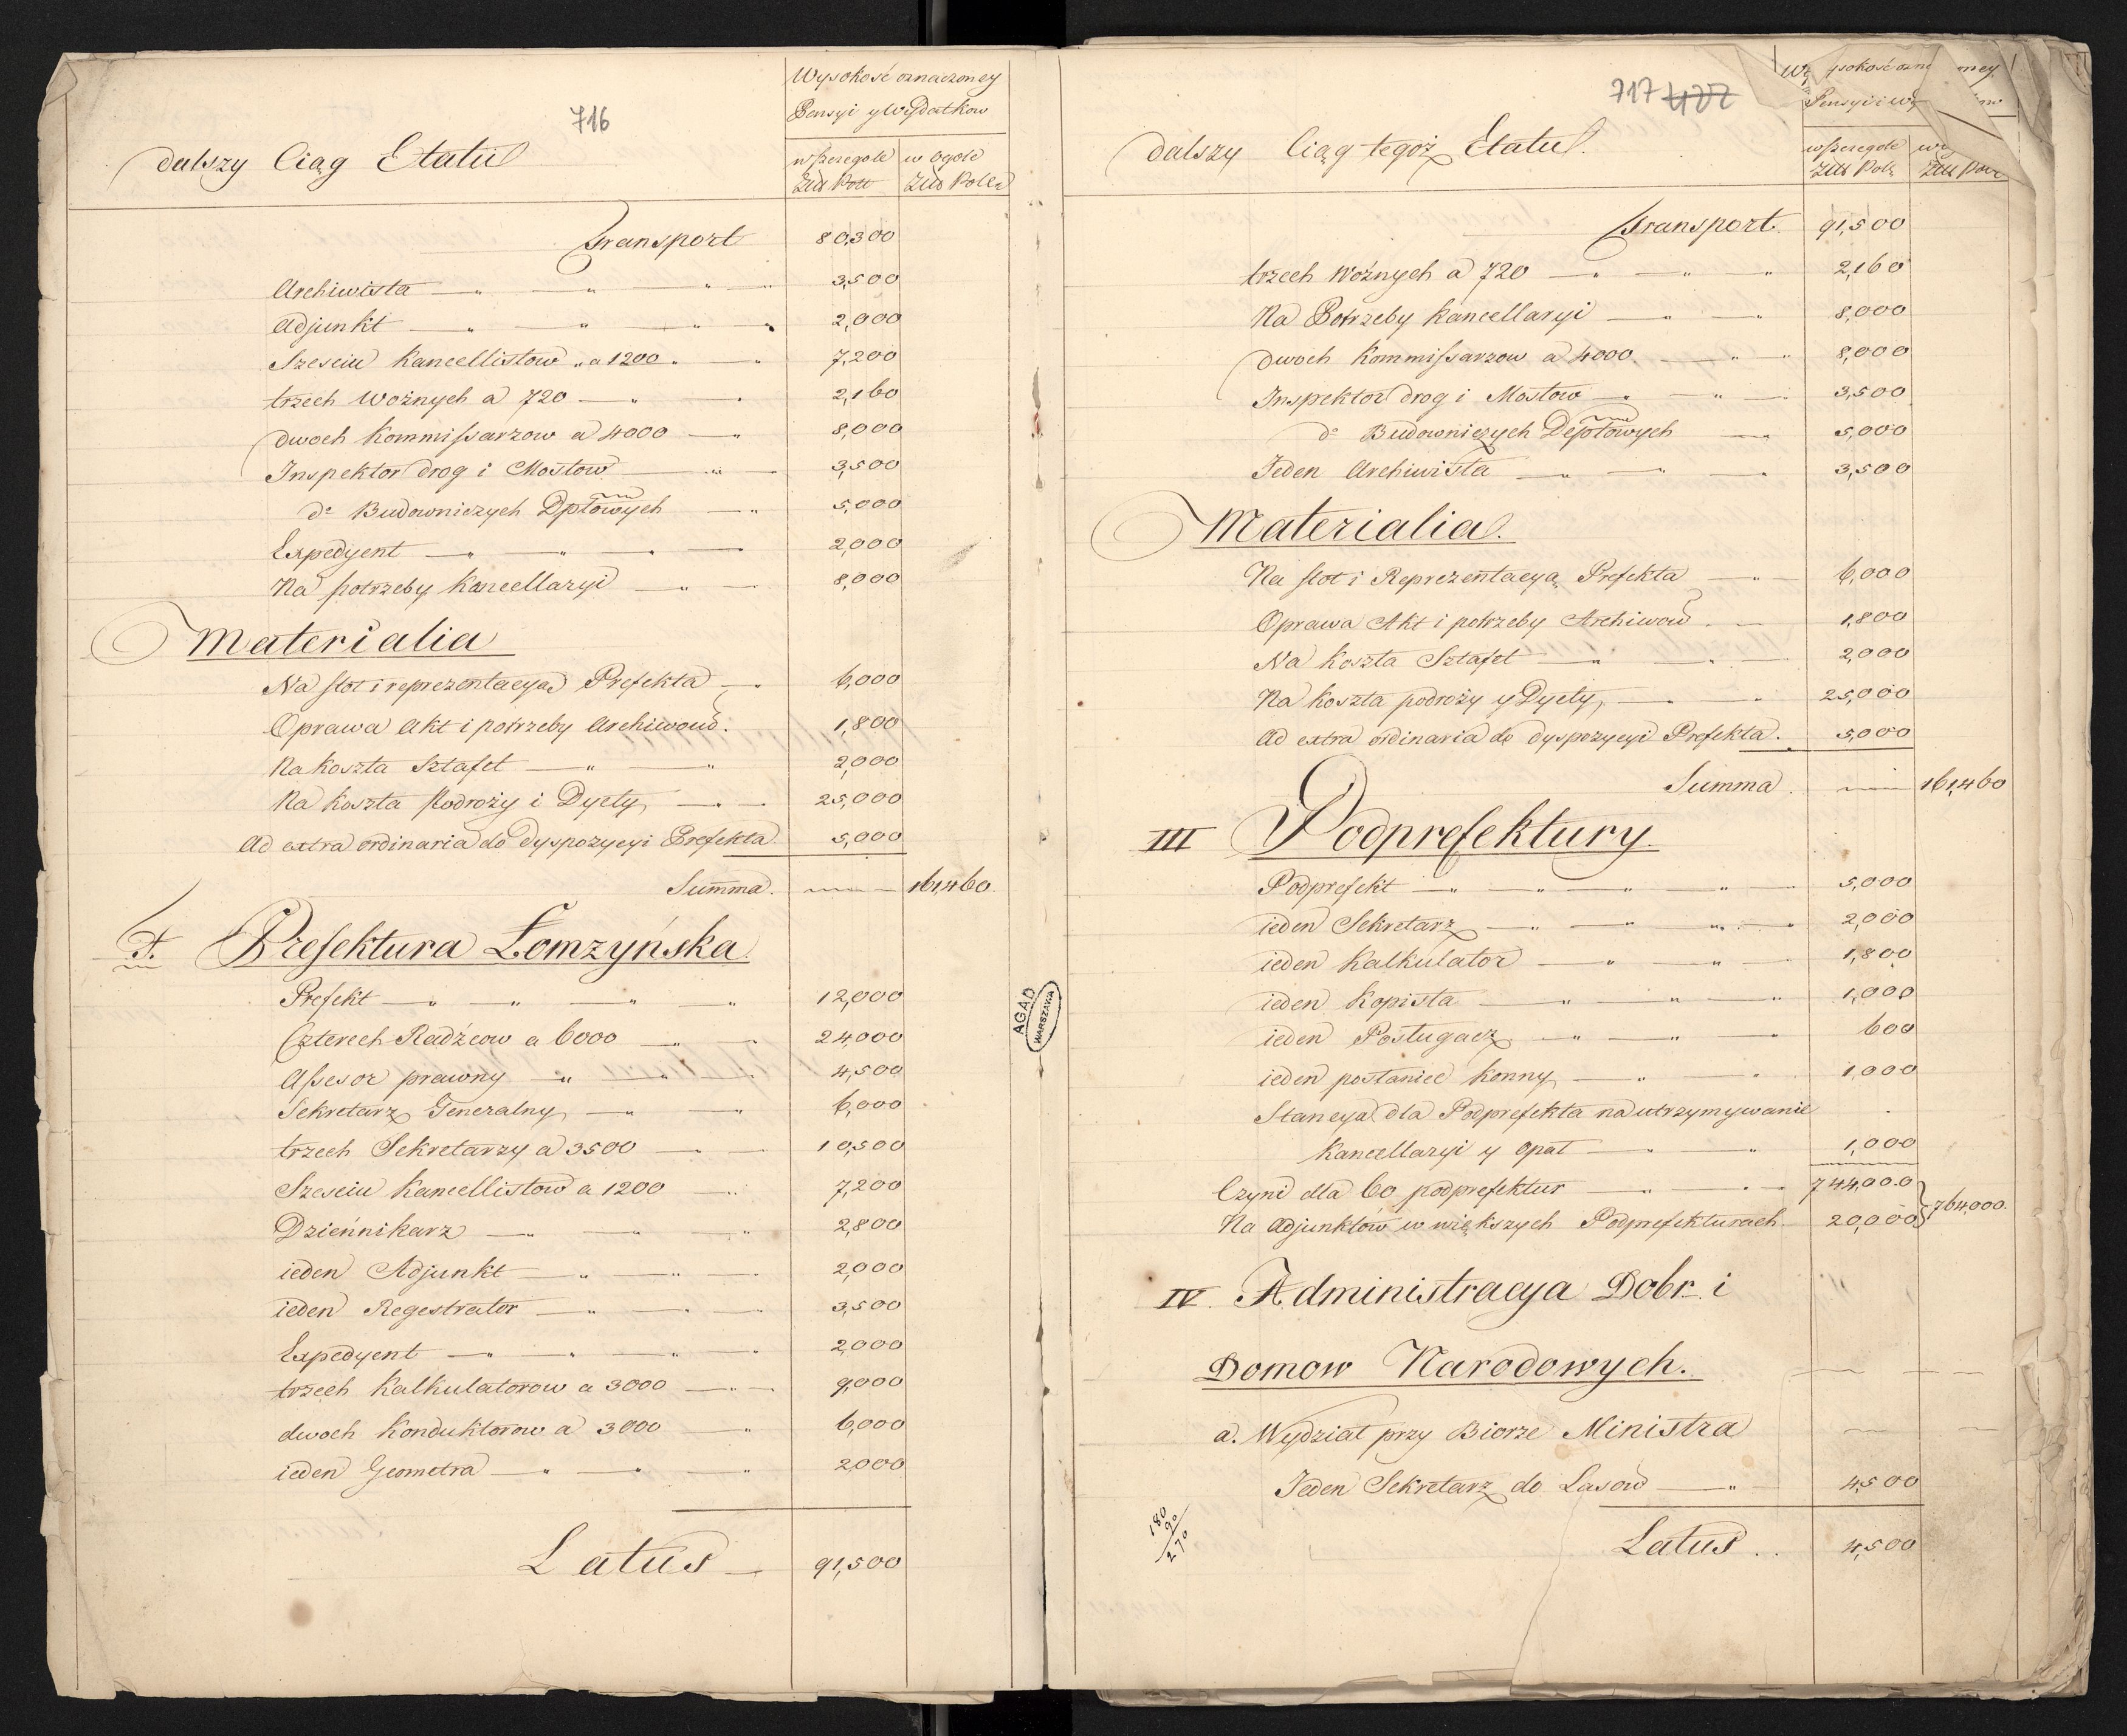 716
Wysokość oznaczoney
Pensyi y Wydatkow
dalszy Ciąg Etatu
w szczegole w ogole
Złł Poll Złł Pollн
Transport 80,300
Archiwista 3,500
Adjunkt 2,000
Szesciu Kancellistow a 1200 7,200
trzech Woźnych a 720 2,160
dwoch Kommissarzow a 4000 8,000
Inspektor drog i Mostow 3,500
do Budowniczych Dptowych 5,000
Expedyent 2,000
Na potrzeby Kancellaryi 8,000
Materialia
Na stoł i reprezentacyą Prefekta 6,000
Oprawa Akt i potrzeby Archiwow 1,800
Na Koszta Sztafet 2,000
Na Koszta Podroży i Dyety 25,000
Ad extra ordinaria do Dyspozycyi Prefekta 5,000
Summa. 161,460.
Prefektura Łomzyńska
Prefekt 12,000
Czterech Radźcow a 6000 24,000
Assesor prawny 4,500
Sekretarz Generalny 6,000
trzech Sekretarzy a 3500 10,500
Szesciu Kancellistow a 1200 7,200
Dzieńnikarz 2,800
ieden Adjunkt 2,000
ieden Regestrator 3,500
Expedyent 2,000
trzech Kalkulatorow a 3000 9,000
dwoch Konduktorow a 3000 6,000
ieden Geometra 2,000
Latus 91,500
AGAD
WARSZAWA
717 477
Pensyi i
dalszy Ciąg tegoż Etatu.
w szczegole
Złł Poll Złł
Transport. 91,500
trzech Woźnych a 720 2,160
Na Potrzeby Kancellaryi 8,000
dwoch Kommissarzow a 4000. 8,000
Inspektor drog i Mostow 3,500
do Budowniczych Deptowych 5,000
Jeden Archiwista 3,500
Materialia.
Na stoł i Reprezentacyą Prefekta 6,000
Oprawa Akt i potrzeby Archiwow 1,800
Na Koszta Sztafet 2,000
Na Koszta podroży y Dyety, 25,000
Ad extra ordinaria do dyspozycyi Prefekta. 5,000
Summa. 161,460
III Podprefektury.
Podprefekt 5,000
ieden Sekretarz 2,000
ieden Kalkulator 1,800
ieden Kopista 1,000
ieden Posługacz 600
ieden posłaniec Konny 1,000
Stancya dla Podprefekta na utrzymywanie
Kancellaryi y opał 1,000
Czyni dla 60 podprefektur 744,000
Na Adjunktow w większych Podprefekturach. 20,000 } 764,000.
IV. Administracya Dobr i
Domow Narodowych.
a. Wydział przy Biorze Ministra
Jeden Sekretarz do Lasow 4,500
180
90
270
Latus.. 4,500